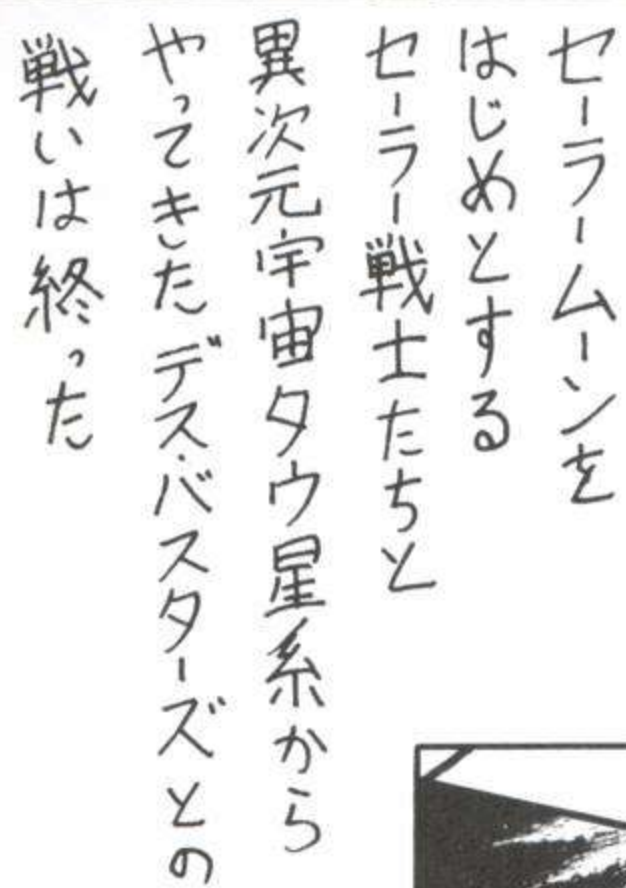 セーラームーンを
はじめとする
セーラー戦士たちと
異次元宇宙タウ星系から
やってきたデス・バスターズとの
戦いは終った